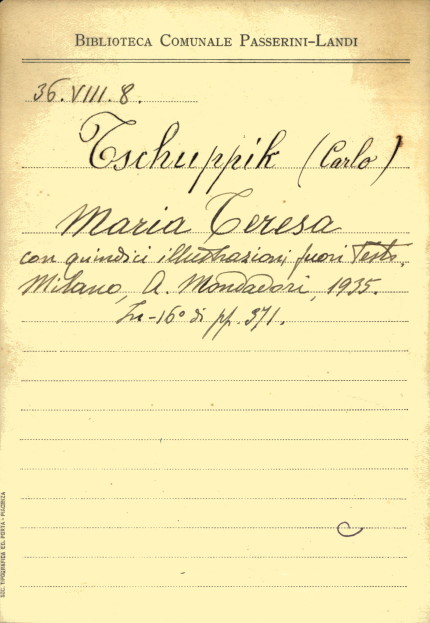 BIBLIOTECA COMUNALE PASSERINI-LANDI
36.VIII.8.
Tschuppik (Carlo)
Maria Teresa
con quindici illustrazioni fuori Testo.
Milano, A. Mondadori, 1935.
In-16° di pp. 371.
SOC. TIPOGRAFICA ED. PORTA - PIACENZA